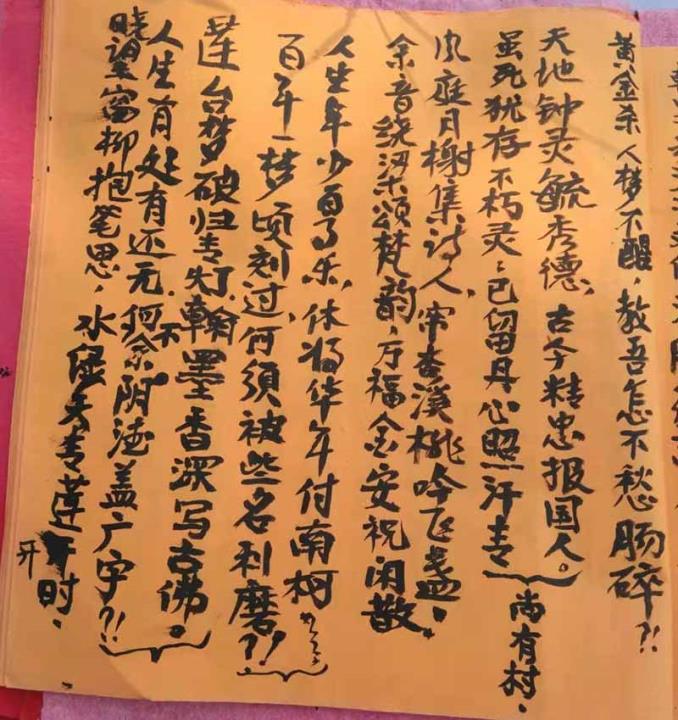 黄金杀人梦不醒，教吾怎不愁肠碎?!
天地钟灵毓秀德，古今精忠报国人。
虽死犹存不朽灵；已留丹心照汗青
尚有村.
风庭月榭集诗人，杏溪桃吟飞盏。
余音绕梁颂梵韵，万福金安祝闲散
人生年少百事乐，休将华年付南柯
百年一梦顷刻过，何须被些名利磨?!
莲台梦破归青灯，翰墨香深写古佛。
人生有处有还无，何不余阴德盖广宇?!
晓望富柳抱笔思，水天青莲开时.